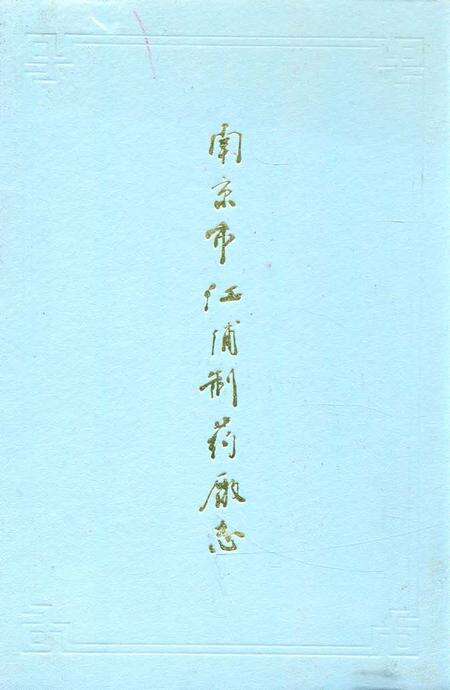 南京市江浦制药厰志